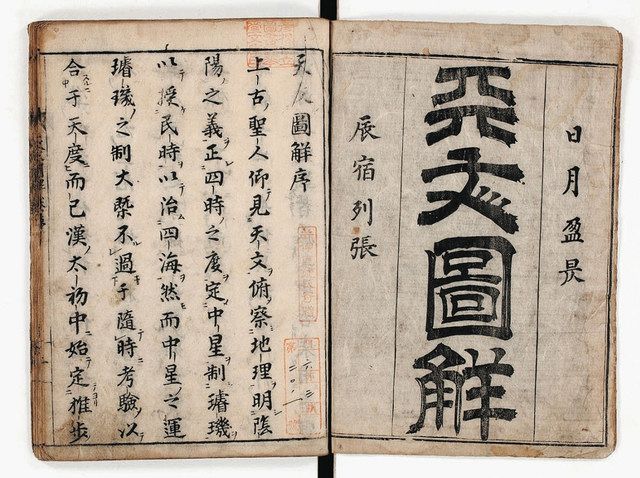 日月盈昃
天文圖解
辰宿列張
天文圖解序
上古聖人仰見天文俯察地理明陰
陽之義正四時之度定中星制璿璣
以授民時以治四海然而中星之運
璿璣之制大槩不過于隨時考驗以
合于天度而已漢太初中始定推步